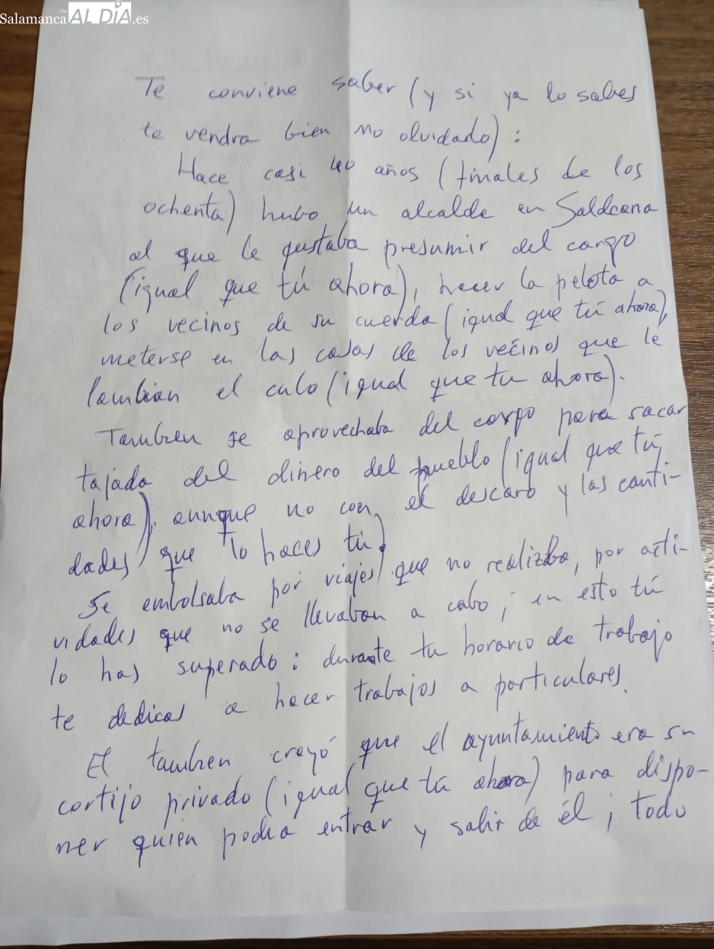 Salamanca AL DÍA.es
Te conviene saber (y si ya lo sabes
te vendra bien no olvidado):
Hace casi 40 años (finales de los
ochenta) hubo un alcalde en Saldeana
al que le gustaba presumir del cargo
(igual que tú ahora), hacer la pelota a
los vecinos de su cuerda (igual que tú ahora),
meterse en las casas de los vecinos que le
lambian el culo (igual que tu ahora).
Tambien se aprovechaba del cargo para sacar
tajada del dinero del pueblo (igual que tú
ahora), aunque no con el descaro y las canti-
dades que lo haces tú.
Se embolsaba por viajes que no realizba, por acti-
vidades que no se llevaban a cabo; en esto tú
lo has superado: durante tu horario de trabajo
te dedicas a hacer trabajos a particulares.
El tambien creyó que el ayuntamiento era su
cortijo privado (igual que tú ahora) para dispo-
ner quien podia entrar y salir de él; todo